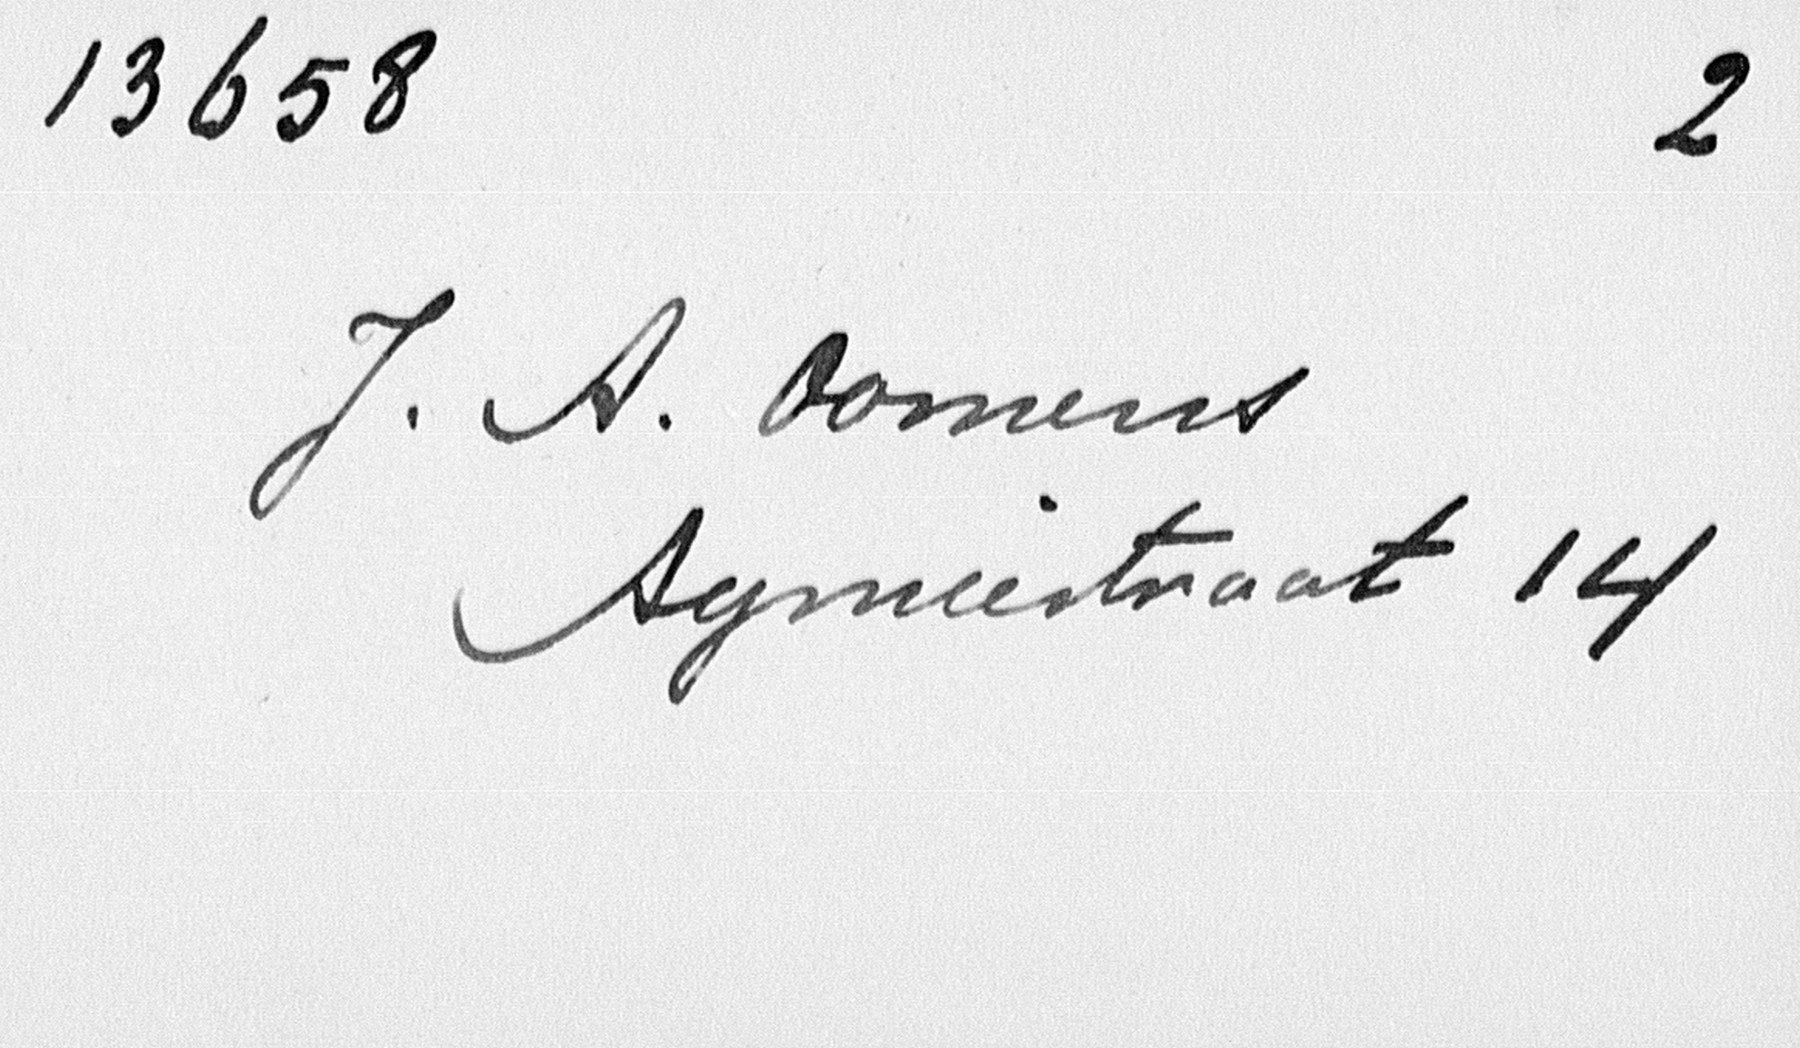 13658 2
J. A. Oomens
Agniestraat 14